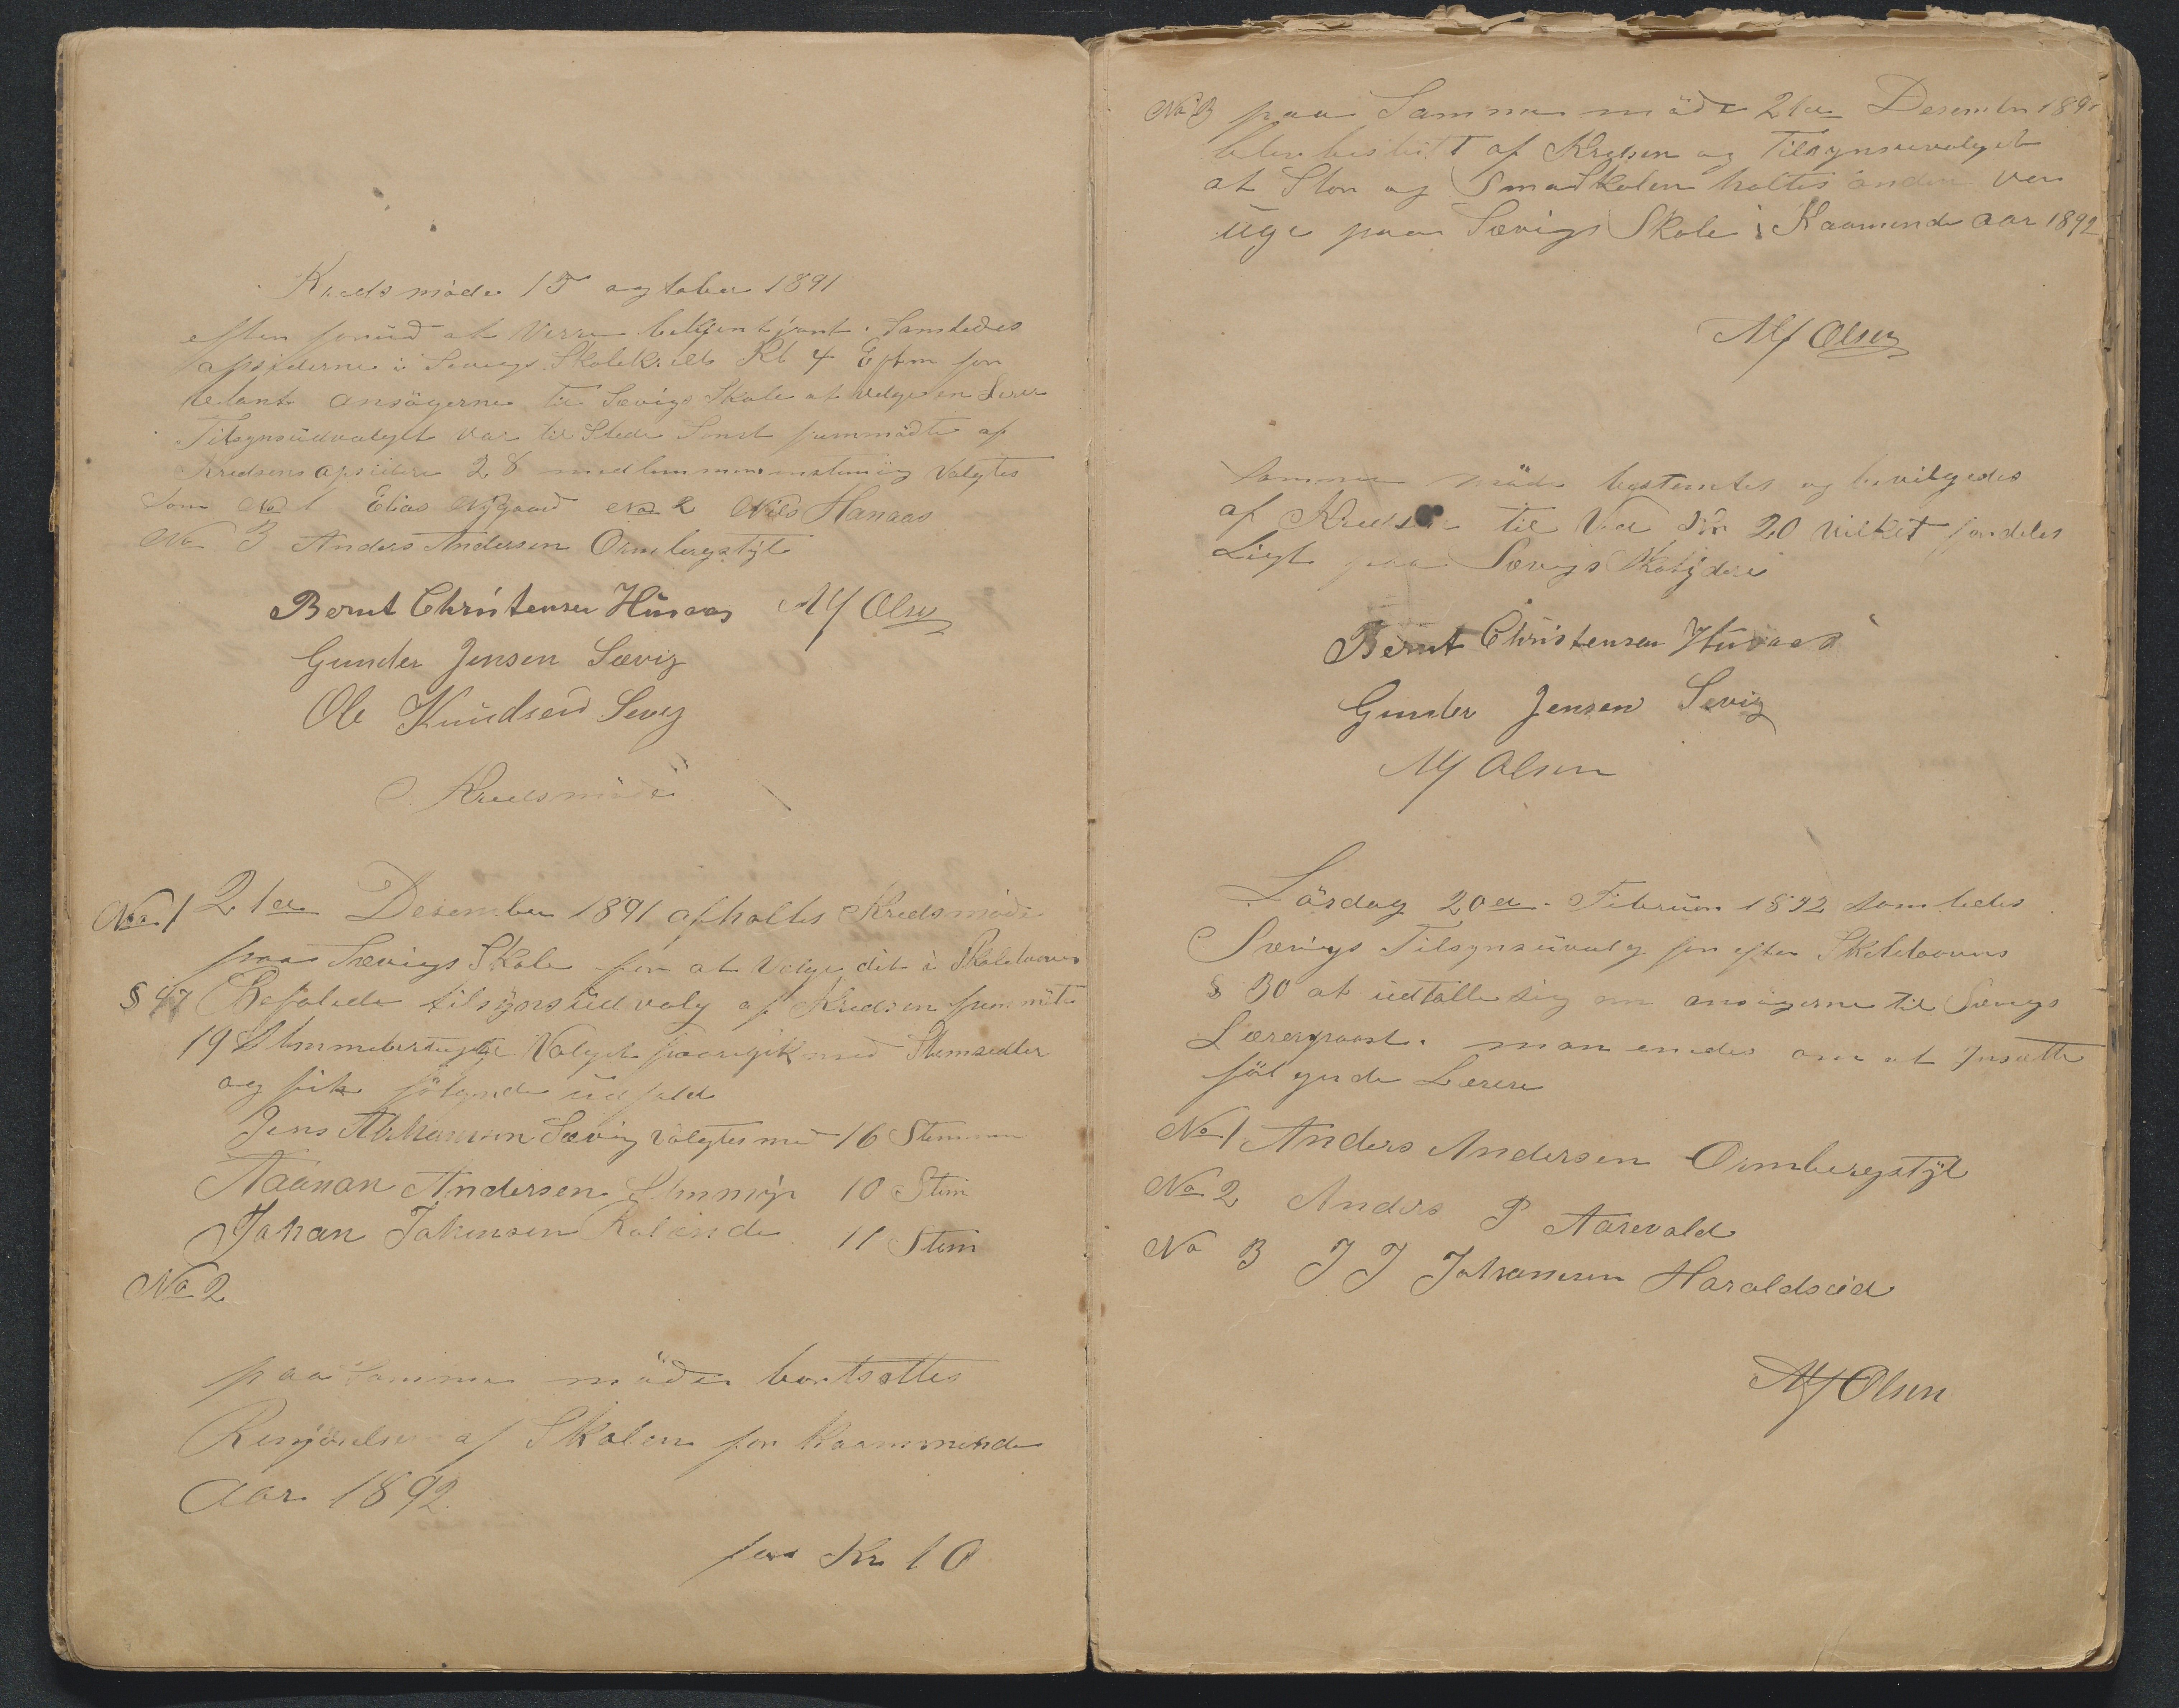 Kredsmøde 15 ogtober 1891
efter forud at Være bekjentjort. Samledes
opsiderne i Sævigs Skolekreds Kl 4 Eftm for
blant ansøgerne til Sævigs Skole at velge en Lærer
Tilsynsudvalget var til Stede Samt fremmødte af
Kredsens opsidere 28 medlemmer Valgtes
Som No 1 Elias Nygaard No 2 Nils Hanaas
No 3 Anders Andersen Ormbergstøl
Bernt Christensen Husaas Alf Olsen
Gunder Jensen Sævig
Ole Knudsen Sevig
Kredsmøde
No 1 21de Desember 1891 afholtes Kredsmøde
paa Sævigs Skole for at Velge dit i Skoleloven
§ 47 Befalede tilsynsudvalg af Kredsen fremmøte
19 Stemmeberettigede Valget foregik med Stemsedler
og fik følgende udfald
Jens Abrahamsen Sævig valgtes med 16 Stemmer
Aanan Andersen 10 Stem
Johan Johnsen 11 Stem
No 2
paa Samme møde bortsattes
Rengjørelse af Skolen for Kaammende
Aar 1892.
for Kr 10
No 3 paa Samme møde 21de Desember 1891
blev beslutt af Kredsen og Tilsynsuvalget
at Stor og Smaaskolen holtes anden ver
uge paa Sævigs Skole i Kaamende aar 1892
Alf Olsen
Samme møde bestemtes og bevilgedes
af Kredsen til Ved Kr 20 vilket fordeles
Ligt paa Sævigs
Bernt Christensen Husaas
Gunder Jensen Sevig
Alf Olsen
Lørdag 20de Februar 1892 Samledes
Sævigs Tilsynsuvalg for efter Skoleloovens
§ 30 at udtalle sig om ansøgerne til Sævigs
Lærerpost. man enedes om at Insætte
følgende Lærere
No 1 Anders Andersen Ormbergstøl
No 2 Anders P Aarevald
No 3 J J Johannesen Haraldseid
Alf Olsen